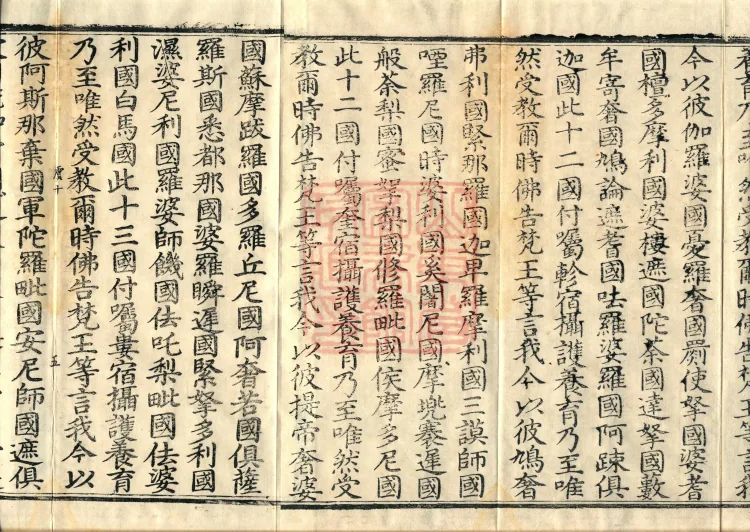 養育乃至唯然受教爾時佛告梵王等言我
今以彼伽羅婆國憂羅奢國罽使拏國婆耆
國檀多摩利國婆樓遮國陀荼國達拏國數
牟寄奢國鳩論遮耆國呿羅婆羅國阿踈俱
迦國此十二國付囑軫宿攝護養育乃至唯
然受教爾時佛告梵王等言我今以彼鳩奢
弗利國緊那羅國迦卑羅摩利國三謨師國
咥羅尼國時婆利國奚闇尼國摩兜寨遲國
般荼梨國蜜拏梨國修羅毗國俟摩多尼國
此十二國付囑奎宿攝護養育乃至唯然受
教爾時佛告梵王等言我今以彼提帝奢婆
國蘇摩跋羅國多羅丘尼國阿奢若國俱薩
羅斯國悉都那國婆羅瞬遲國緊拏多利國
濕婆尼利國羅婆師饑國佉吒梨毗國佉婆
利國白馬國此十三國付囑婁宿攝護養育
乃至唯然受教爾時佛告梵王等言我今以
五
彼阿斯那棄國軍陀羅毗國安尼師國遮俱